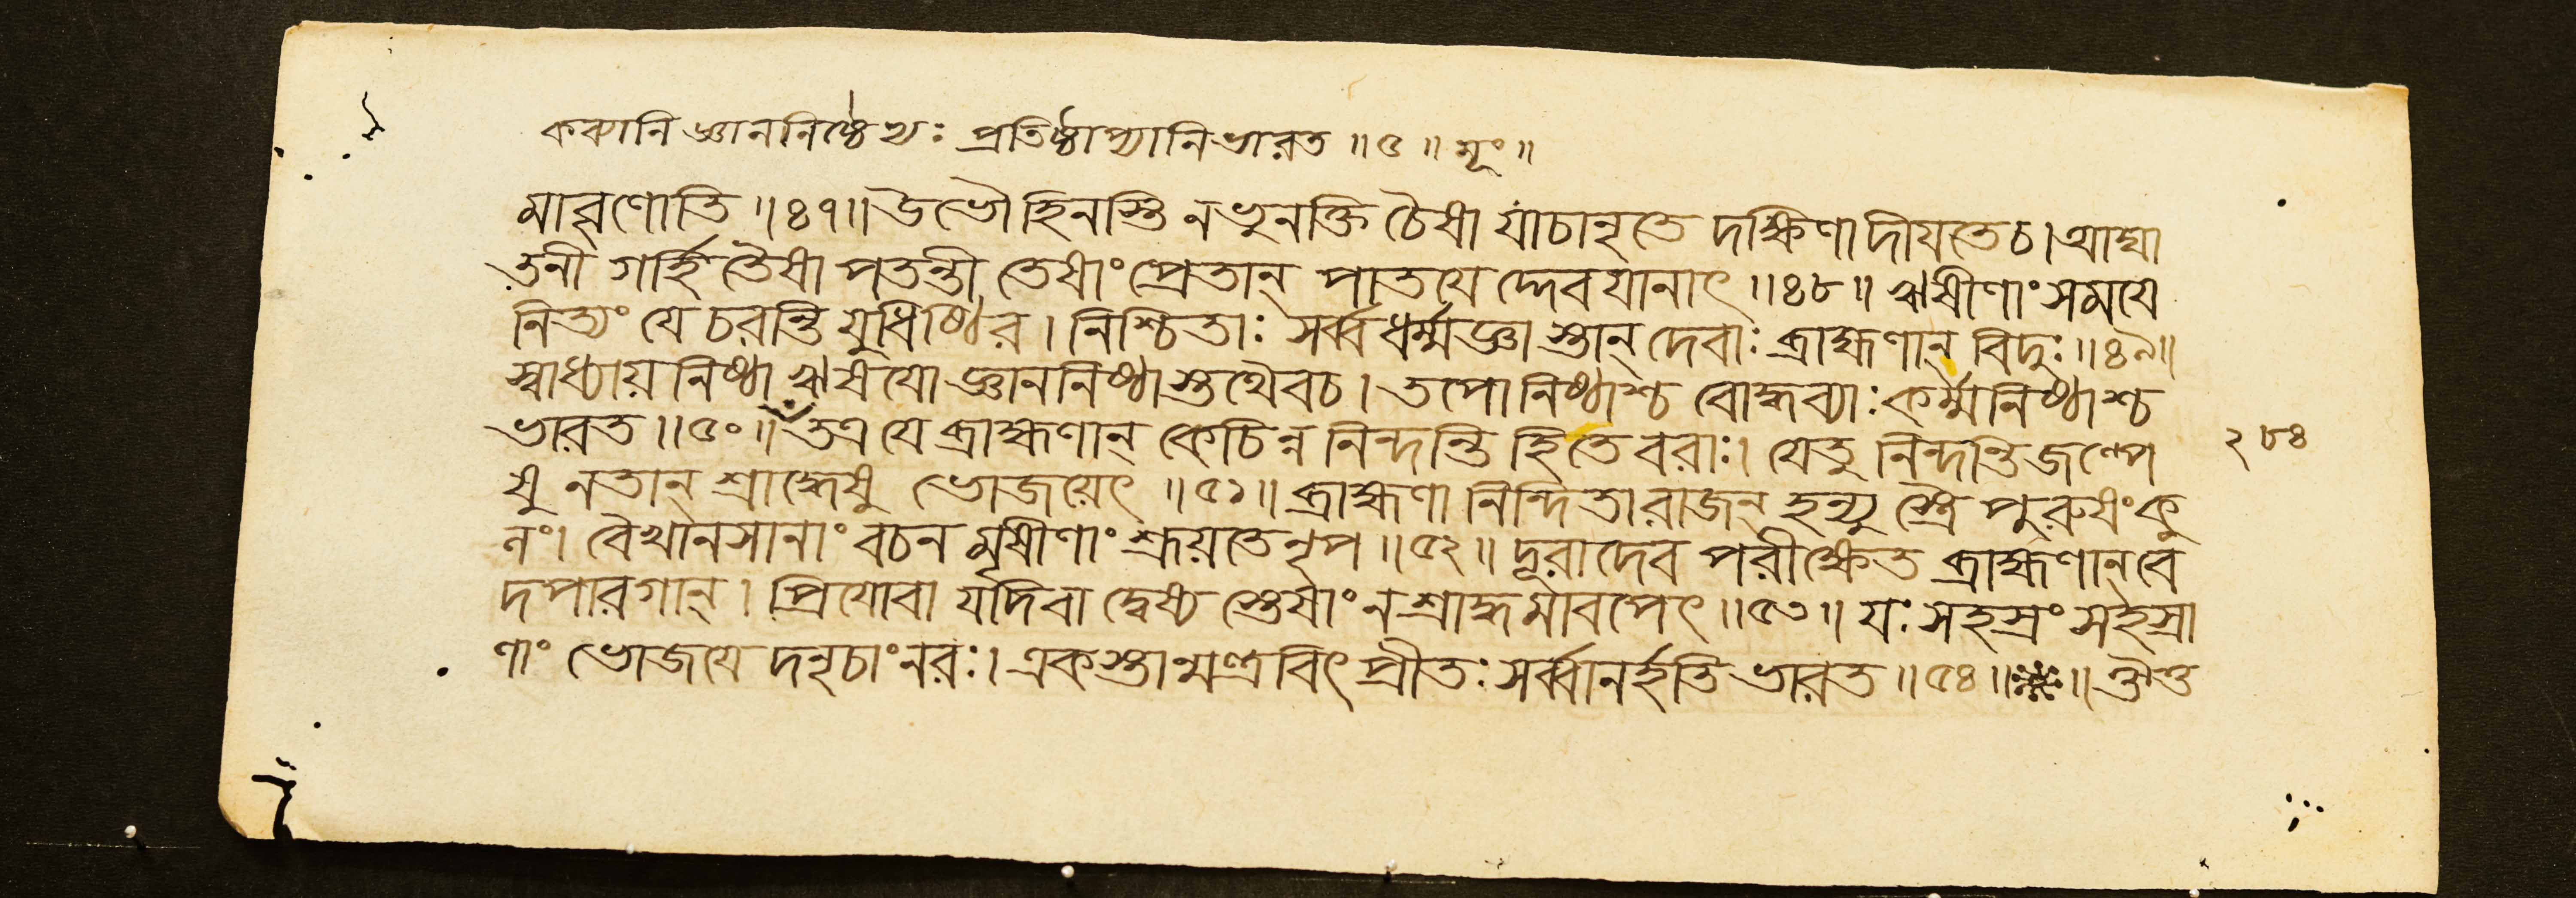 কব্যানি জ্ঞাননিষ্ঠেভ্যঃ প্রতিষ্ঠাপ্যানি ভারত ॥ ৫ ॥ মূং ॥
মাবৃণোতি ॥ ৪৭ ॥ উভৌ হিনস্তি ন ভুনক্তি চৈষা যা চানৃতে দক্ষিণা দীযতে চ । আঘা
তনী গর্হিতৈষা পতন্তী তেষাং প্রেতান্ পাতযেদ্দেবযানাৎ ॥ ৪৮ ॥ ঋষীণাং সমযে
নিত্যং যে চরন্তি যুধিষ্ঠির । নিশ্চিতাঃ সর্ব্বধর্ম্মজ্ঞাস্তান্ দেবাঃ ব্রাহ্মণান্ বিদুঃ ॥ ৪৯ ॥
স্বাধ্যায়নিষ্ঠা ঋষযো জ্ঞাননিষ্ঠাস্তথৈব চ । তপোনিষ্ঠাশ্চ বোদ্ধব্যাঃ কর্ম্মনিষ্ঠাশ্চ
ভারত ॥ ৫০ ॥ তত্র যে ব্রাহ্মণান্ কেচিন্ন নিন্দন্তি হি তে বরাঃ । যে তু নিন্দন্তি জল্পে
ষু ন তান্ শ্রাদ্ধেষু ভোজয়েৎ ॥ ৫১ ॥ ব্রাহ্মণা নিন্দিতা রাজন্ হন্যুস্ত্রৈপুরুষং কু
লং । বৈখানসানাং বচনমৃষীণাং শ্রূয়তে নৃপ ॥ ৫২ ॥ দূরাদেব পরীক্ষেত ব্রাহ্মণান্ বে
দপারগান্ । প্রিযো বা যদি বা দ্বেষ্যস্তেষাং ন শ্রাদ্ধমাবপেৎ ॥ ৫৩ ॥ যঃ সহস্রং সহস্রা
ণাং ভোজযেদনৃচাং নরঃ । একস্তান্মন্ত্রবিৎ প্রীতঃ সর্ব্বানর্হতি ভারত ॥ ৫৪ ॥ ॥
২৮৪